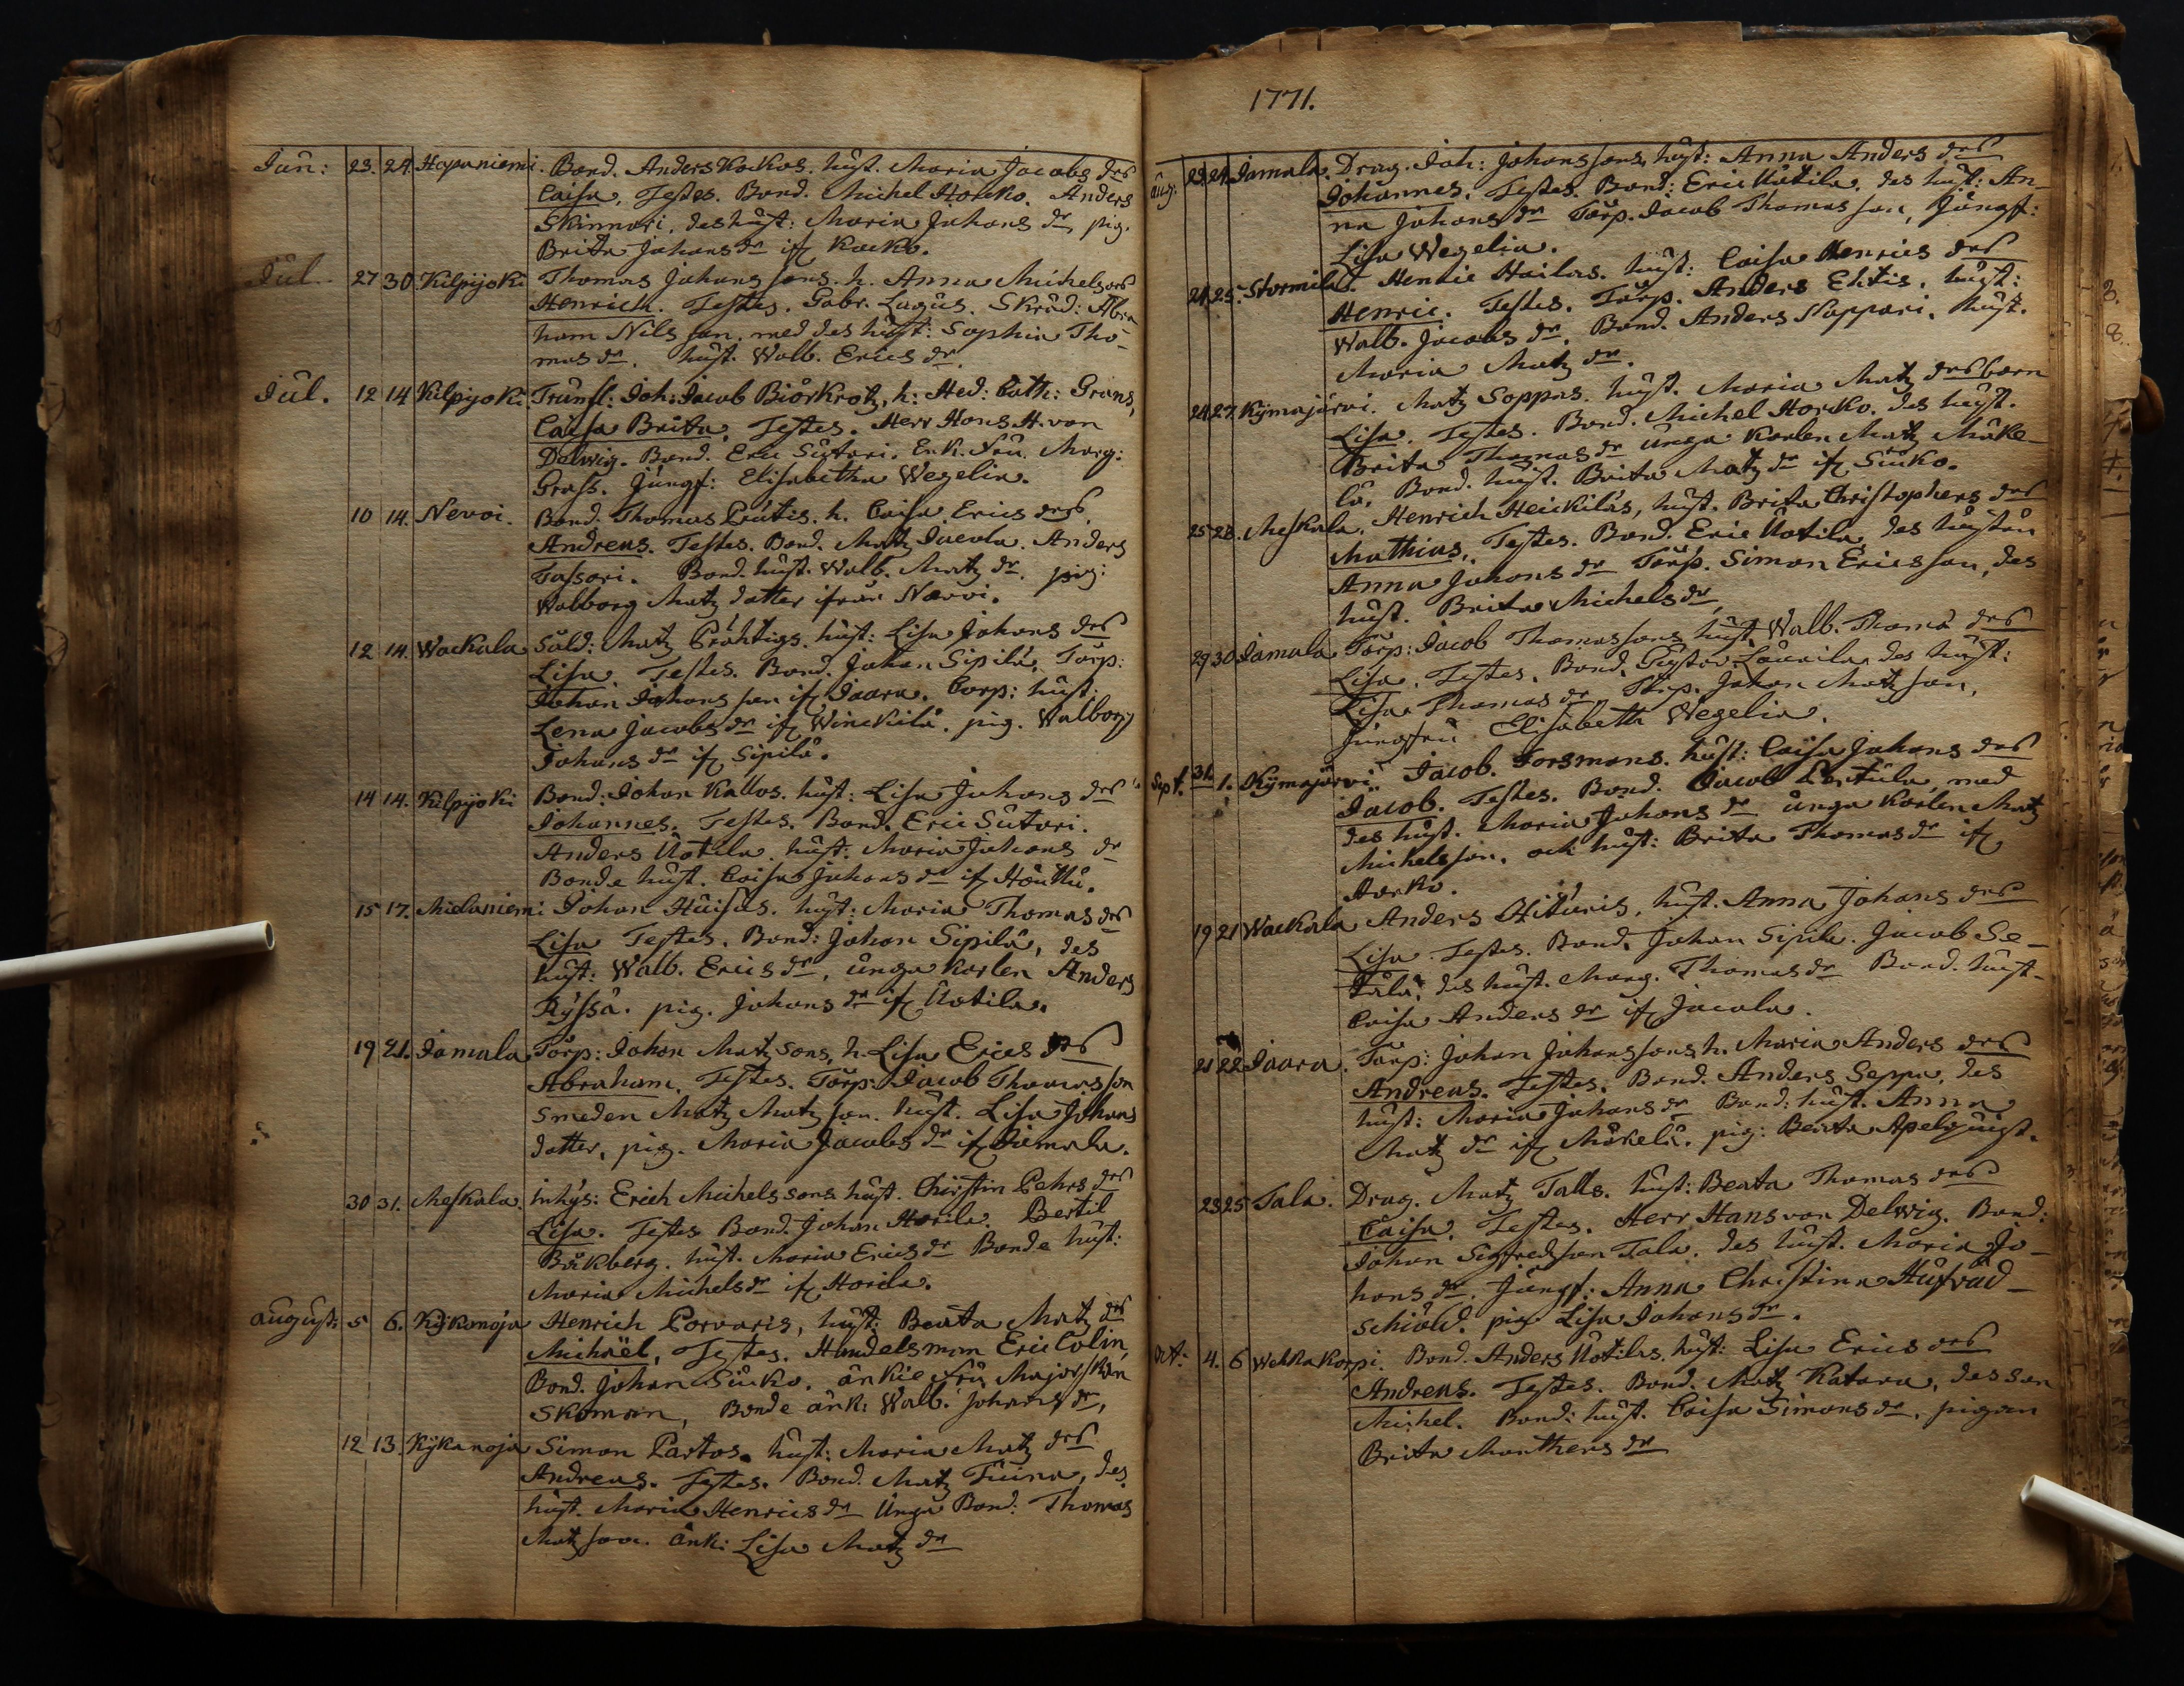 Jun: 23. 24. Hapaniemi. Bond. Anders Kockos. hust. Maria Jacobs drs
Caisa, Testes. Bond. Michel Horcko. Anders
Skinnari, des hust: Maria Johans dr, pig.
Brita Johans dr if Kocko.
Jul. 27 30. Kilpijoki Thomas Johans sons. h. Anna Michels drs
Henrich. Testes. Gabr. Lagus. Skräd: Abra
ham Nils son. med des hust: Sophia Tho-
mas dr. hust. Walb. Erics dr.
Jul. 12 14 Kilpijoki. Trunsl: Joh: Jacob Biörkrotz, h: Hed: Cath: Grans,
Caisa Brita, Testes. Herr Hans H. von
Delwig. Bond. Eric Sutari. Enk. Fru. Marg:
Grass. Jungf: Elisabetha Wegelia.
10 14. Nevoi. Bond. Thomas Prutis. h. Caisa Erics drs.
Andreas. Testes. Bond. Matz Jacola. Anders
Tassari. Bond. hust. Walb. Matz dr. pig:
Walborg Matz dotter ifrån Naevoi.
12 14. Wackala Sold: Matz Prähtigs. hust: Lisa Johans drs
Lisa. Testes. Bond. Johan Sipilä, Torp:
Johan Johans son if Jaara. Corp: hust:
Lena Jacobs dr if Winckilä. pig. Walborg
Johans dr if Sipilä.
14 14. Kilpijoki Bond: Johan Kallos. hust: Lisa Johans drs
Johannes. Testes. Bond. Eric Sutari.
Anders Uotila. hust: Maria Johans dr
Bonde hust. Caisa Johans dr if Houttu.
15 17. Mielaniemi Johan Huisus. hust: Maria Thomas drs
Lisa Testes. Bond: Johan Sipilä, des
hust: Walb. Erics dr, unga karlen Anders
Ryssä. pig. Johans dr if Uotila.
19 21. Jamala Torp: Johan Matz sons, h. Lisa Erics drs
Abraham. Testes. Torp: Jacob Thomas son
Smeden Matz Matz son. hust. Lisa Johans
dotter, pig. Maria Jacobs dr if Jamala.
30 31. Meskala. Inhys: Erich Michels sons hust. Christin Pehrs drs
Lisa. Testes Bond. Johan Horila. Bertil
Bäkberg. hust. Maria Erics dr Bonde hust:
Maria Michels dr if Horila.
August: 5 6. Kykonoja Henrich Porvaris, hust: Beata Matz drs
Michaël, Testes. Handelsman Eric Colin,
Bond. Johan Siuko. änkie fru Majorskan
Skoman, Bonde änk: Walb. Johans dr,
12 13. Kykanoja Simon Partos. hust: Maria Matz drs
Andreas. Testes. Bond. Matz Tuina, des
hust. Maria Henrics dr Unga Bond: Thomas
Matz son. Änk: Lisa Matz dr
1771.
Aug. 23. 24. Jamala. Drag. Joh: Johans sons, hust: Anna Anders drs
Johannes. Testes. Bond: Eric Uotila. des hust: An-
na Johans dr Torp. Jacob Thomas son, Jungf:
Lisa Wegelia.
24. 25. Stormilä. Henric Hailas. hust: Caisa Henrics drs
Henric. Testes. Torp. Anders Ehtis. hust:
Walb. Jacobs dr. Bond. Anders Slappari. hust.
Maria Matz dr.
24. 27. Kymajärvi. Matz Soppas. hust. Maria Matz drs barn
Lisa. Testes. Bond. Michel Horcko. des hust.
Brita Thomas dr unga Karlen Matz Mäke-
lä. Bond. hust. Brita Matz dr if Siuko.
25 28. Meskala. Henrich Heickiläs, hust. Brita Christophers drs
Mathias. Testes. Bond. Eric Uotila des hustru
Anna Johans dr Torp. Simon Erics son, des
hust. Brita Michels dr
29 30 Jamala Torp: Jacob Thomas sons hust. Walb. Thoma drs
Lisa. Testes. Bond. Gustav Lauvila des hust:
Lisa Thomas dr Torp. Johan Matz son,
Jungfru Elisabetth Wegelia.
Sept. 31. 1. Kymajärvi. Jacob. Forsmans. hust: Caisa Johans drs
Jacob. Testes. Bond. Jacob Pertula med
des hust. Maria Johans dr unga Karlen Matz
Michels son. och hust: Brita Thomas dr if
Horko.
19 21 Wackala Anders Hituris, hust. Anna Johans drs
Lisa. Testes. Bond. Johan Sipila. Jacob Se-
tälä, des hust. Marg. Thomas dr Bond. hust-
Caisa Anders dr if Jacola.
21 22 Jaara. Torp: Johan Johans sons h. Maria Anders drs
Andreas. Testes. Bond. Anders Seppa, des
hust: Maria Johans dr Bond: hust. Anna
Matz dr if Mäkelä. pig: Beata Apelquist.
23 25 Tala. Drag. Matz Talls. hust: Beata Thomas drs
Caisa. Testes. Herr Hans von Delwig. Bond:
Johan Sigfreds son Tala. des hust. Maria Jo-
hans dr. Jungf: Anna Christina Husvud-
schiöld. pig Lisa Johans dr.
Oct: 4. 6 Wehkakorpi. Bond. Anders Uotilas. hust: Lisa Erics drs
Andreas. Testes. Bond. Matz Katara, des son
Michel. Bond: hust. Caisa Simons dr, pigan
Brita Marthens dr